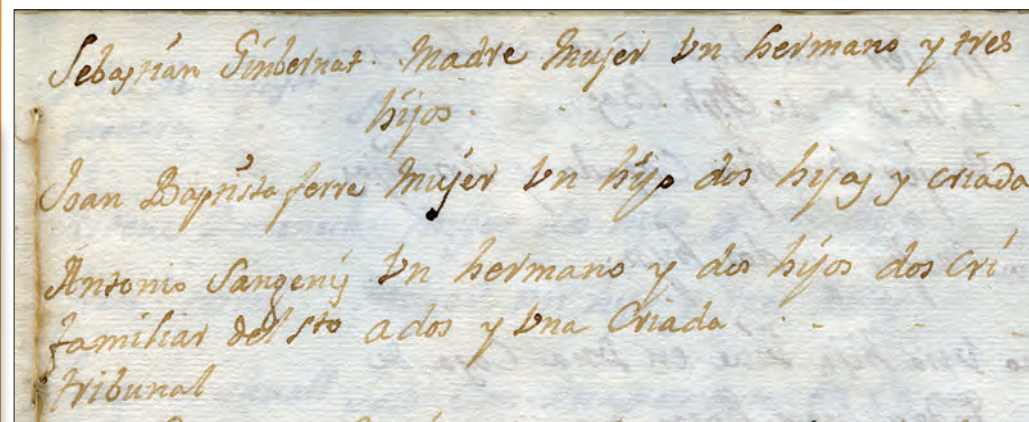 Sebastián Gimbernat. Madre Mujer Vn hermano y tres
hijos.
Joan Baptista ferre Mujer Vn hijo dos hijas y criada
Antonio Sangenij Vn hermano y dos hijos dos Cri
familiar del sto ados y Vna Criada
tribunal